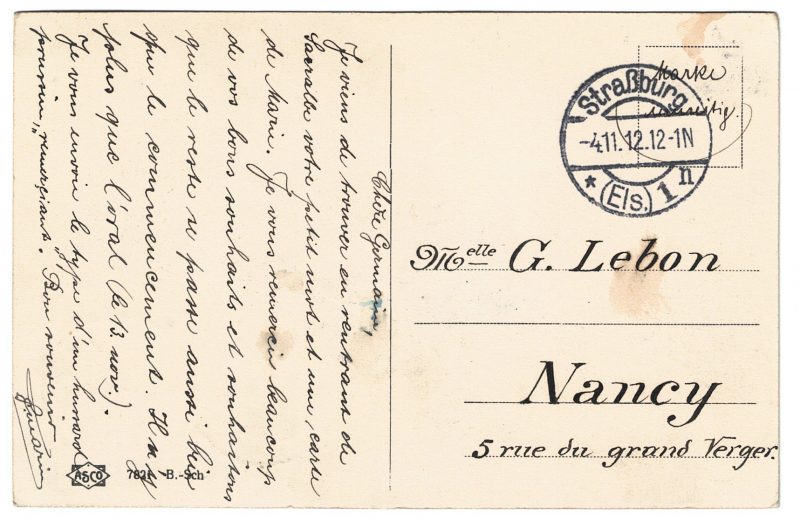 Chère Germaine,
Je viens de trouver en rentrant de
Sarralbe votre petit mot et une carte
de Marie. Je vous remercie beaucoup
de vos bons souhaits et souhaitons
que le reste se passe aussi bien
que le commencement. Il n'y
plus que l'oral (le 13 nov.).
Je vous envoie le type d'un hussard
prussien, Bon souvenir
ASCO 7821 B.-Sch
Marke
Straßburg
-4.11.12.12-1N
* (Els.) 1 n
Melle G. Lebon
Nancy
5 rue du grand Verger.